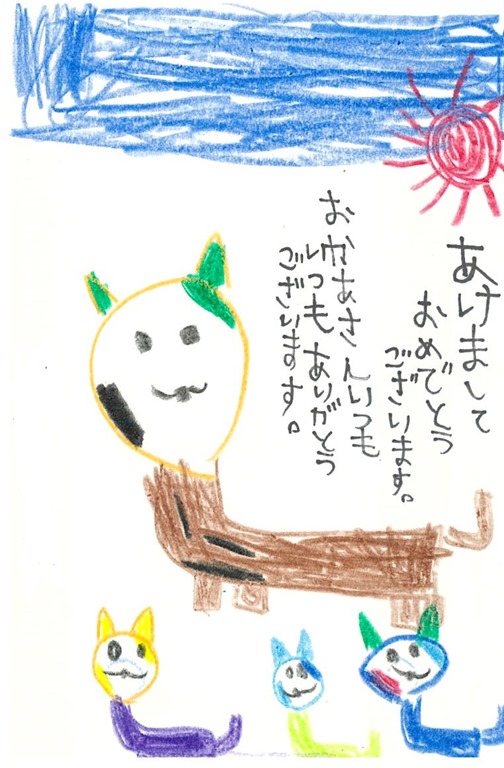 あけまして
おめでとう
ございます。
おかあさんいつも
いつもありがとう
ございます。